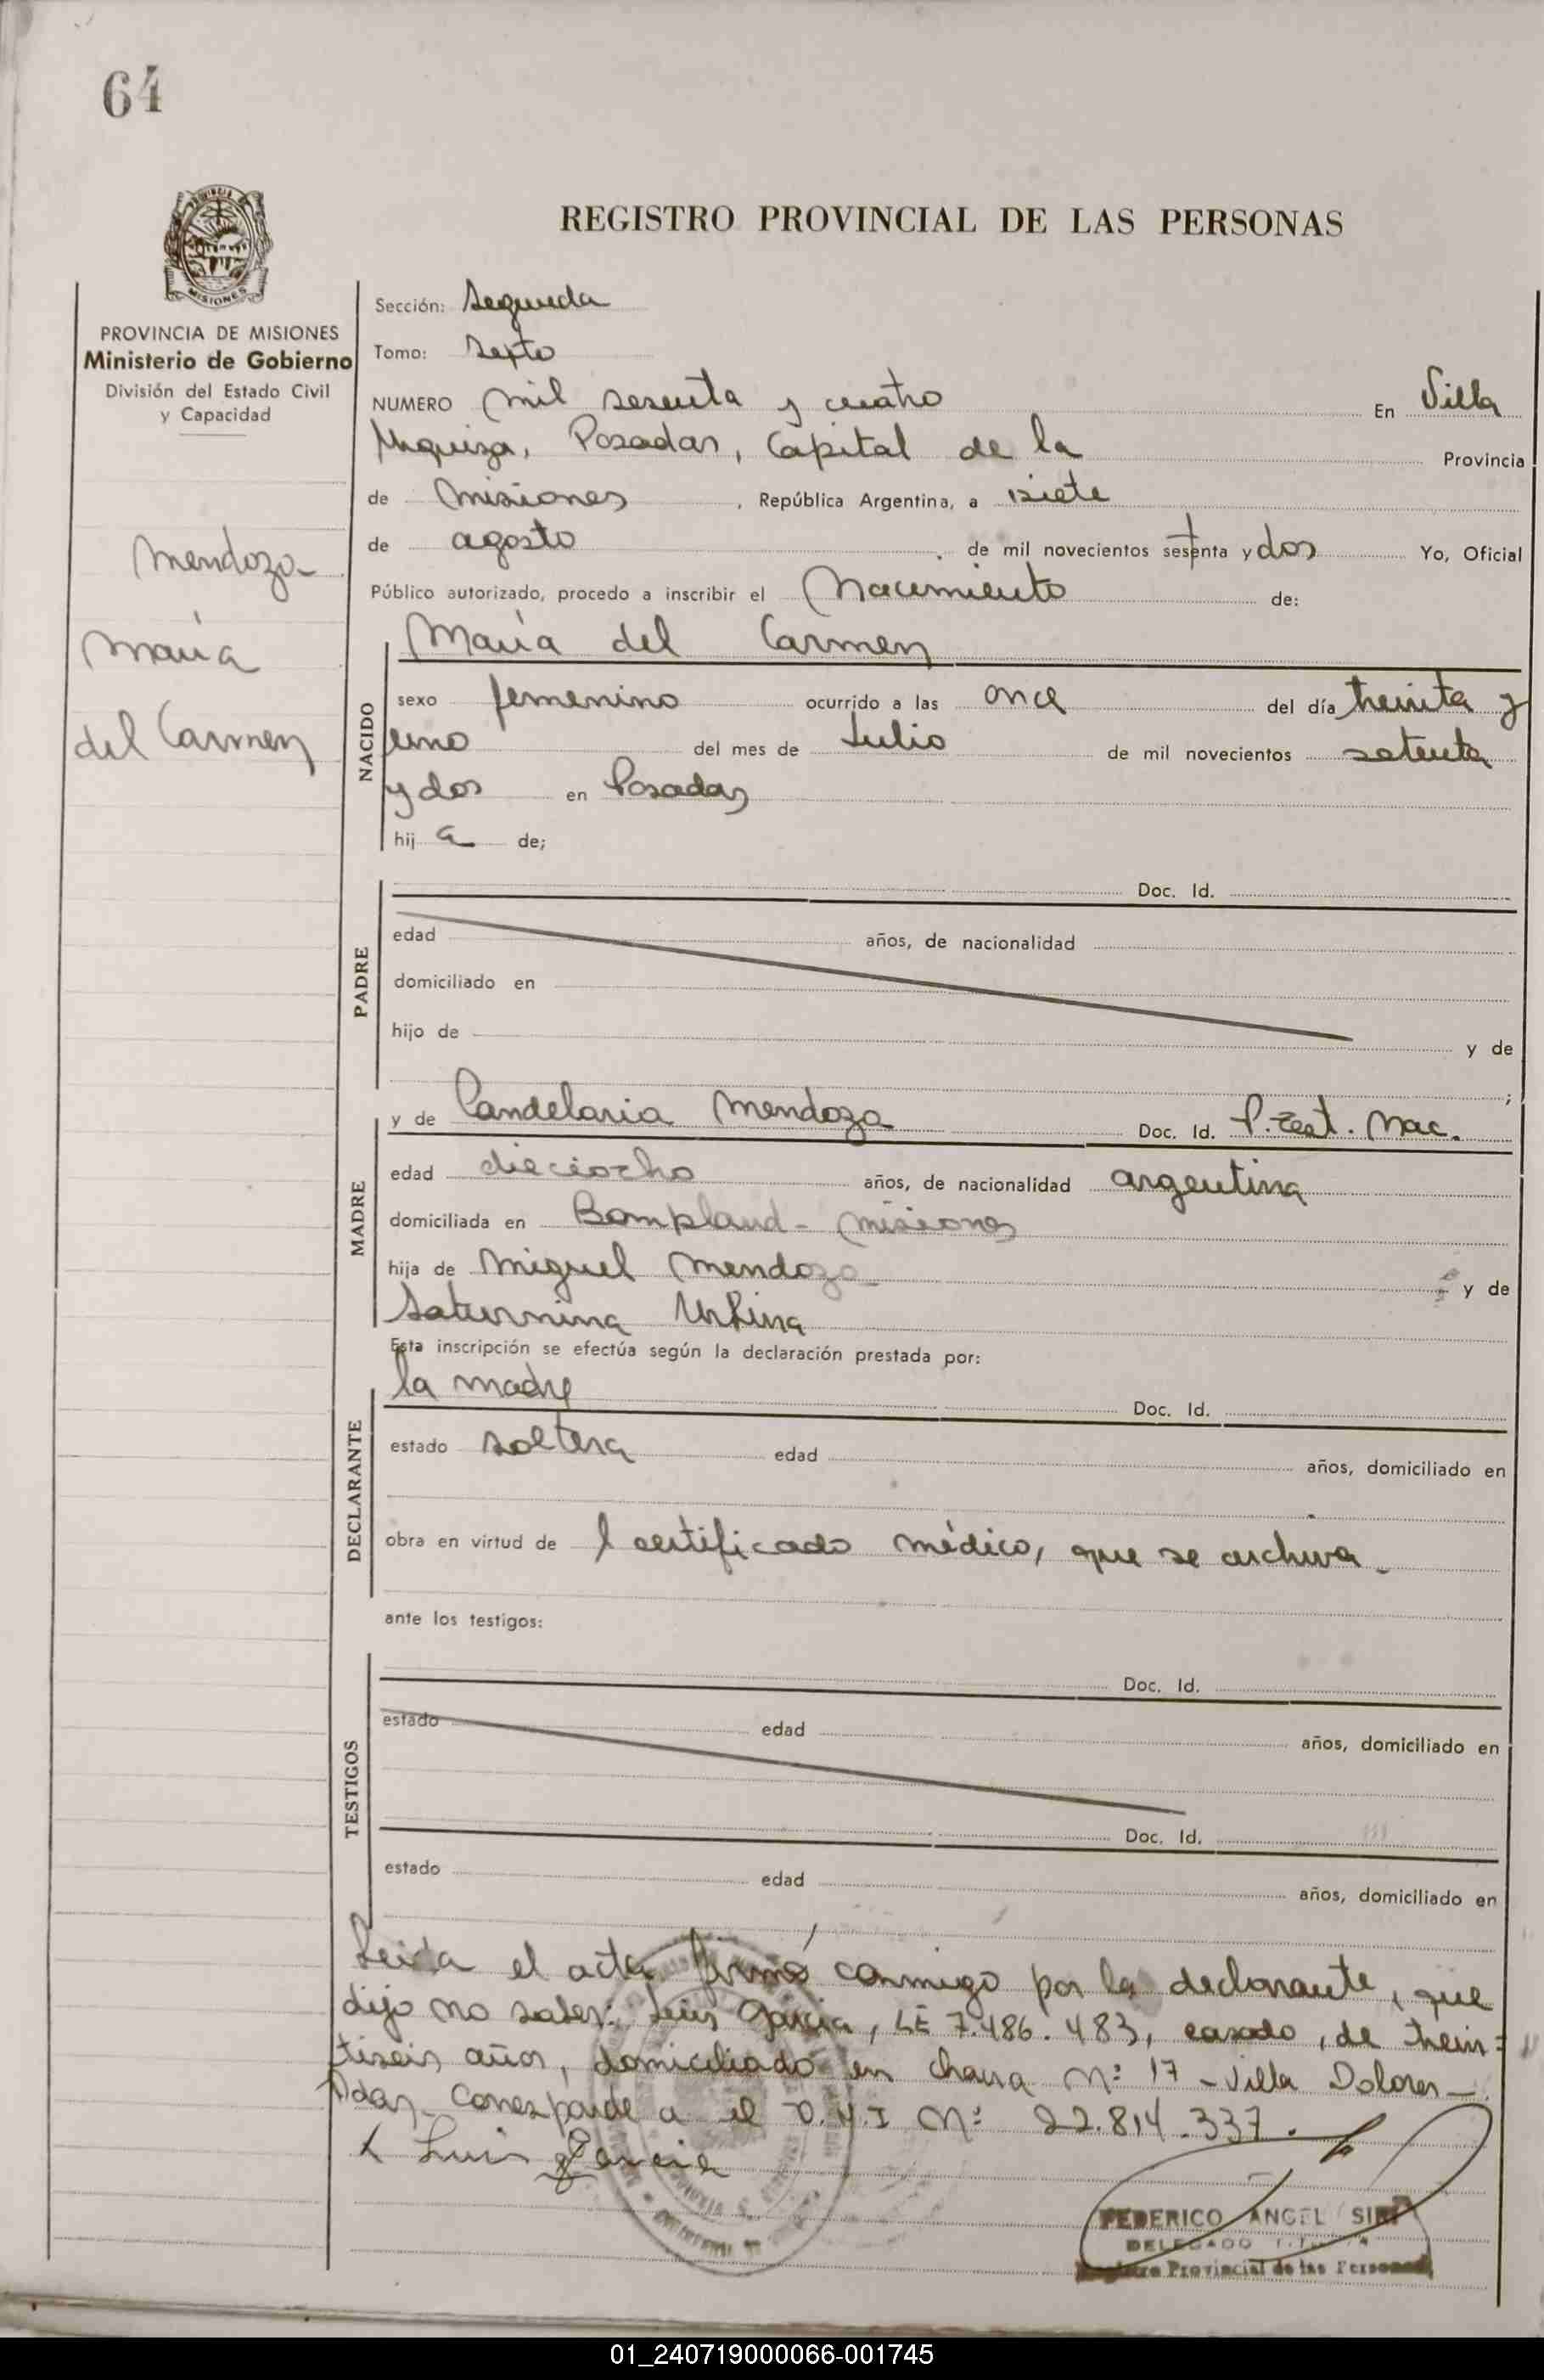 64
REGISTRO PROVINCIAL DE LAS PERSONAS
MISIONES
PROVINCIA DE MISIONES
Ministerio de Gobierno
División del Estado Civil
y Capacidad
Mendoza
María
del Carmen
Sección: Segunda
Tomo: Sexto
NUMERO mil sesenta y cuatro En Villa
Urquiza, Posadas, Capital de la Provincia
de Misiones, República Argentina, a siete
de agosto, de mil novecientos sesenta y dos Yo, Oficial
Público autorizado, procedo a inscribir el Nacimiento de:
María del Carmen
NACIDO
sexo femenino ocurrido a las once del día treinta y
uno del mes de Julio de mil novecientos setenta
y dos en Posadas
hij a de;
PADRE
Doc. Id.
edad años, de nacionalidad
domiciliado en
hijo de y de
;
MADRE
y de Candelaria Mendoza Doc. Id. P. Nac.
edad dieciocho años, de nacionalidad argentina
domiciliada en Bompland - Misiones
hija de Miguel Mendoza y de
Saturnina Urbina
Esta inscripción se efectúa según la declaración prestada por:
DECLARANTE
la madre Doc. Id.
estado soltera edad años, domiciliado en
obra en virtud de l certificado médico, que se archiva.
ante los testigos:
TESTIGOS
Doc. Id.
estado edad años, domiciliado en
Doc. Id.
estado edad años, domiciliado en
Leída el acta firmó conmigo por la declarante, que
dijo no saber: Luis García, LE 7.486.483, casado, de trein=
tiseis años, domiciliado en chacra Nº 17 - Villa Dolores -
Pdas. Corresponde a el D.N.I Nº 22.814.337.
Luis Garcia
FEDERICO ANGEL SIRI
DELEGADO
Registro Provincial de las Personas
01_240719000066-001745